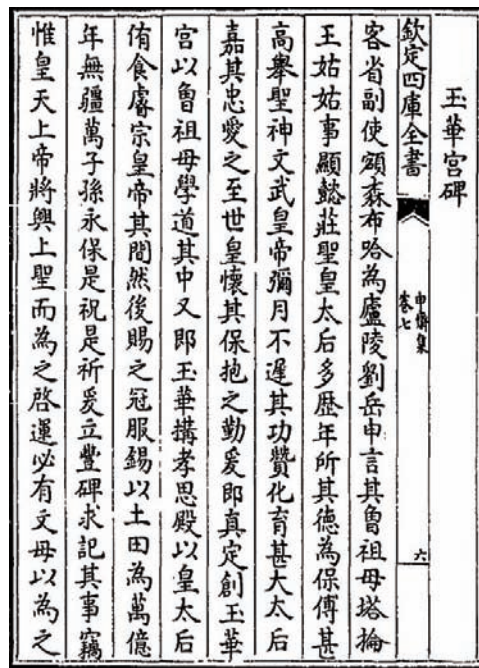 玉華宮碑
欽定四庫全書
申齋集
卷七
六
客省副使額森布哈為廬陵劉岳申言其魯祖母塔掄
王姑姑事顯懿莊聖皇太后多歷年所其德為保傅甚
高舉聖神文武皇帝彌月不遲其功贊化育甚大太后
嘉其忠愛之至世皇懷其保抱之勤爰即真定創玉華
宮以魯祖母學道其中又即玉華搆孝思殿以皇太后
侑食睿宗皇帝其間然後賜之冠服錫以土田為萬億
年無疆萬子孫永保是祝是祈爰立豐碑求記其事竊
惟皇天上帝將興上聖而為之啓運必有文母以為之